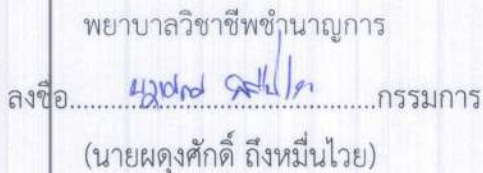 พยาบาลวิชาชีพชำนาญการ
ลงชื่อ...............................................กรรมการ
(นายผดุงศักดิ์ ถึงหมื่นไวย)